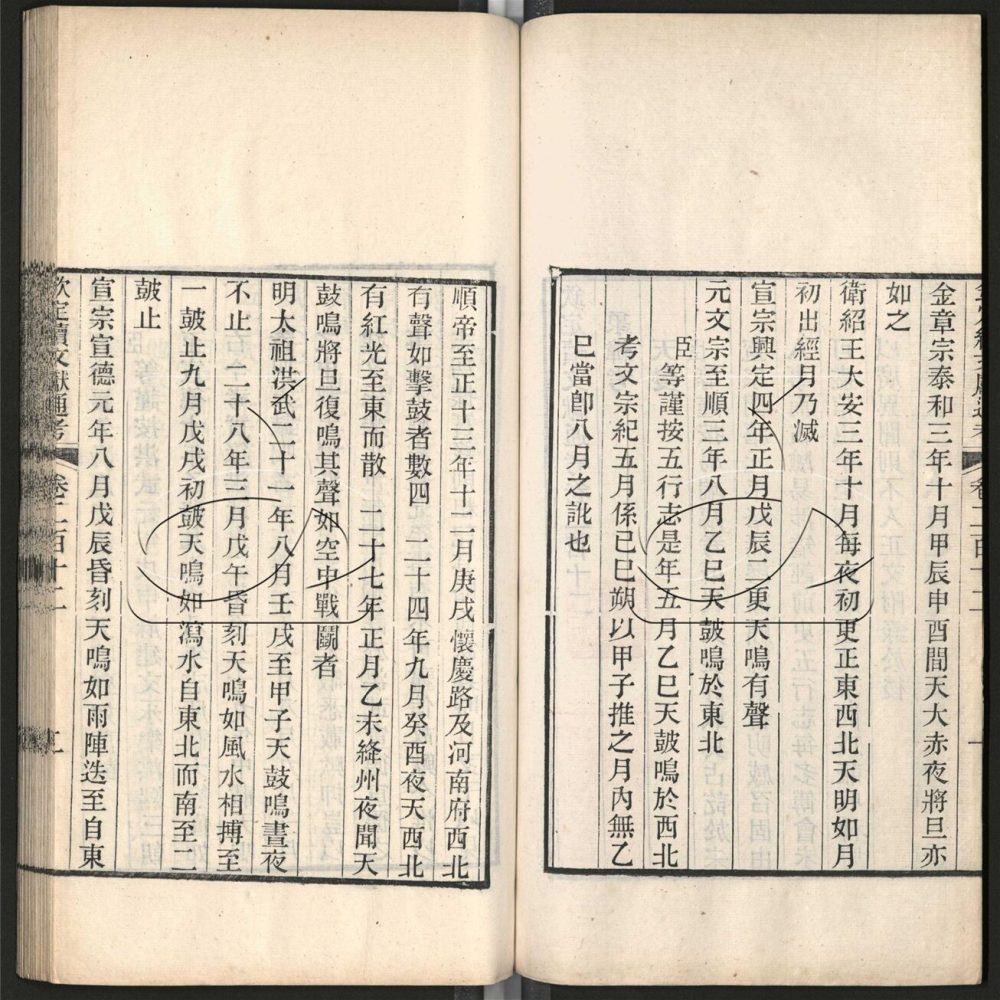 金章宗泰和三年十月甲辰申酉閒天大赤夜將旦亦
如之
衛紹王大安三年十月每夜初更正東西北天明如月
初出經月乃滅
宣宗興定四年正月戊辰二更天鳴有聲
元文宗至順三年八月乙巳天皷鳴於東北
臣等謹按五行志是年五月乙巳天皷鳴於西北
考文宗紀五月係己巳朔以甲子推之月內無乙
巳當卽八月之訛也
順帝至正十三年十二月庚戌懷慶路及河南府西北
有聲如擊鼓者數四二十四年九月癸酉夜天西北
有紅光至東而散 二十七年正月乙未絳州夜聞天
鼓鳴將旦復鳴其聲如空中戰鬭者
明太祖洪武二十一年八月壬戌至甲子天鼓鳴晝夜
不止 二十八年三月戊午昏刻天鳴如風水相搏至
一皷止九月戊戌初皷天鳴如瀉水自東北而南至二
皷止
宣宗宣德元年八月戊辰昏刻天鳴如雨陣迭至自東
欽定續文獻通考 卷二百十二